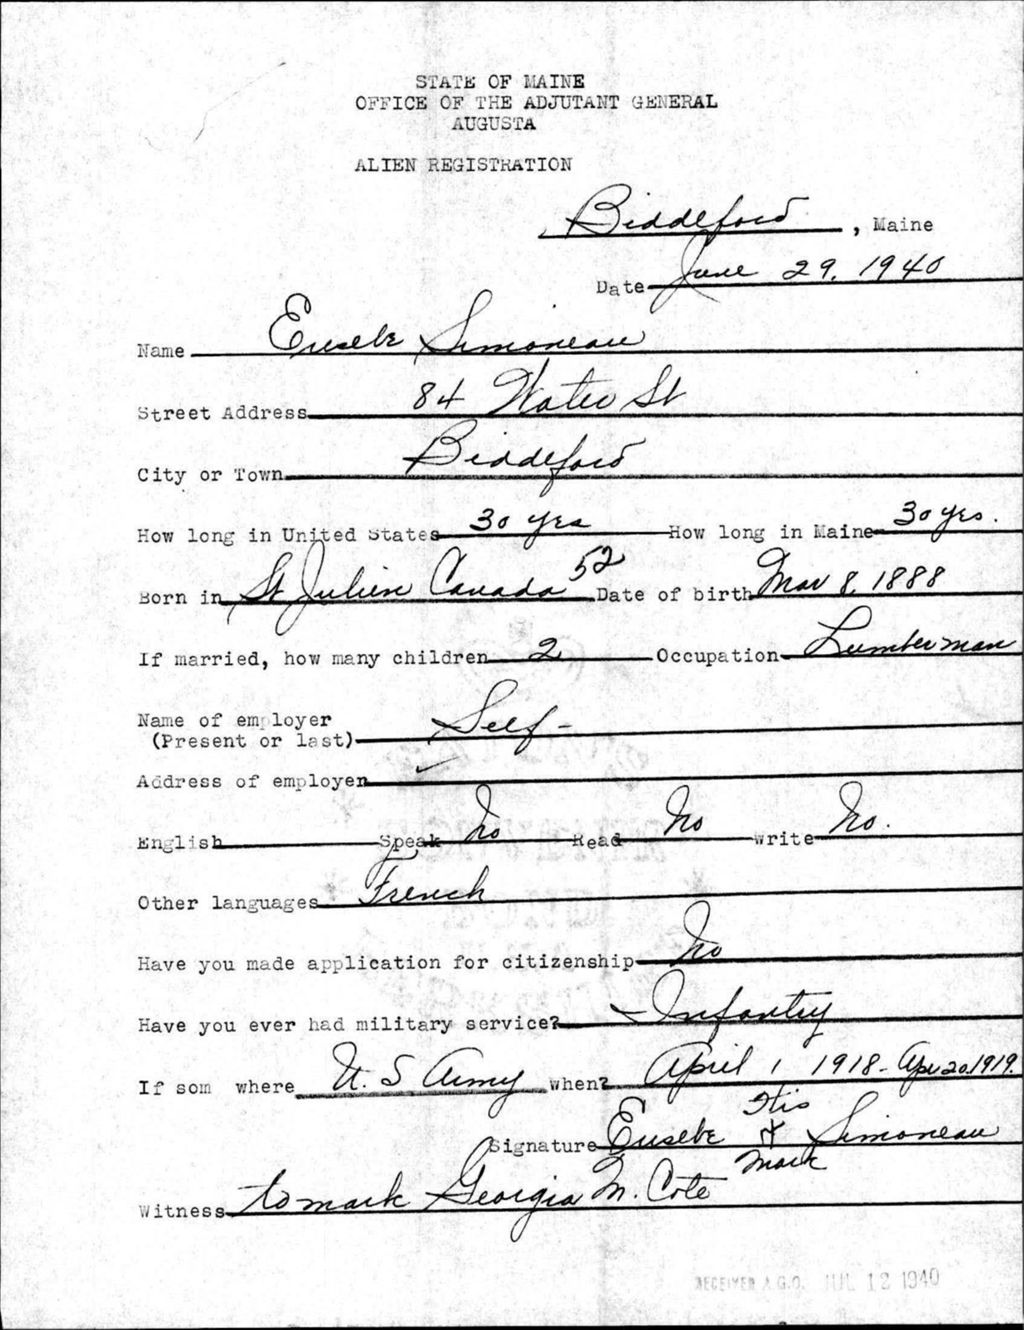 STATE OF MAINE
OFFICE OF THE ADJUTANT GENERAL
AUGUSTA
ALIEN REGISTRATION
Biddeford, Maine
Date June 29, 1940
Name Eusebe Simoneau
Street Address 84 Water St
City or Town Biddeford
How long in United States 30 yrs How long in Maine 30 yrs.
Born in St Julien Canada 52 Date of birth Mar 8, 1888
If married, how many children 2 Occupation Lumberman
Name of employer Self-
(Present or last)
Address of employer
English Speak No Read No Write No.
Other languages French
Have you made application for citizenship No
Have you ever had military service? Infantry
If som where U.S Army when? April 1 1918 - Apr 20 1919.
His
Signature Eusebe X Simoneau
mark
Witness to mark Georgia M. Cote
RECEIVED A.G.O. JUL 12 1940